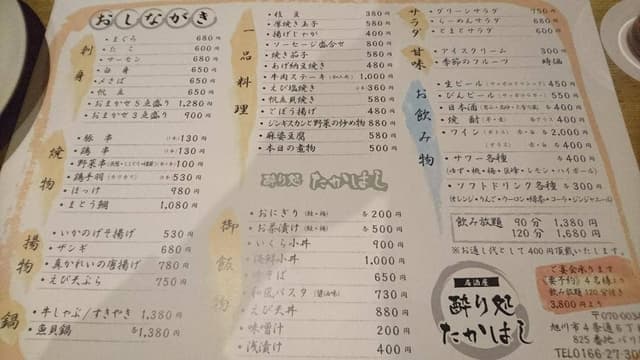 おしながき
刺身
・まぐろ 680円
・たこ 600円
・サーモン 680円
・白身 650円
・〆さば 650円
・帆立 650円
おまかせ5点盛り 1,280円
おまかせ3点盛り 980円
焼物
・豚串 130円
・鶏串 130円
・野菜串 100円
・鶏手羽 530円
・ほっけ 980円
・まとう鯛 1,080円
揚物
・いかのげそ揚げ 530円
・ザンギ 580円
・真かれいの唐揚げ 780円
・えび天ぷら 750円
鍋
・牛しゃぶ/すきやき 各1,380円
・魚貝鍋 各1,380円
一品料理
・枝豆 380円
・厚焼き玉子 380円
・揚げじゃが 400円
・ソーセージ盛合せ 800円
・焼き茄子 580円
・あげ納豆焼き 480円
・牛肉ステーキ 1,000円
・えび塩焼き 360円
・帆立貝焼き 360円
・ごぼう揚げ 480円
・ジンギスカンと野菜の炒め物 880円
・麻婆豆腐 480円
・本日の煮物 500円
酔り処 たかはし
御飯物
・おにぎり(鮭・梅) 各200円
・お茶漬け(鮭・梅) 各500円
・いくら小丼 900円
・海鮮小丼 1,000円
そば 650円
・和風パスタ(醤油味) 730円
・えび天丼 880円
・味噌汁 200円
・浅漬け 400円
サラダ
・グリーンサラダ 750円
・らーめんサラダ 680円
・とまとサラダ 600円
甘味
・アイスクリーム 300円
・季節のフルーツ 時価
お飲み物
・生ビール 500円
・びんビール 550円
・日本酒 400円
・焼酎 400円
・ワイン 各2,000円
各400円
・サワー各種 各400円
(ゆず・桃・梅・巨峰・シモン・ハイボール)
・ソフトドリンク各種 各300円
(オレンジ・りんご・ウーロン・緑茶・コーラ・ジンジャエール)
飲み放題 90分 1,380円
120分 1,680円
※お通し代として400円頂戴いたします。
ご宴会承ります
(要予約)4名様より
飲み放題120分付き
3,800円より
居酒屋
酔り処
たかはし
〒070-003
旭川市4条通8丁
825番地
TEL0166-27-30